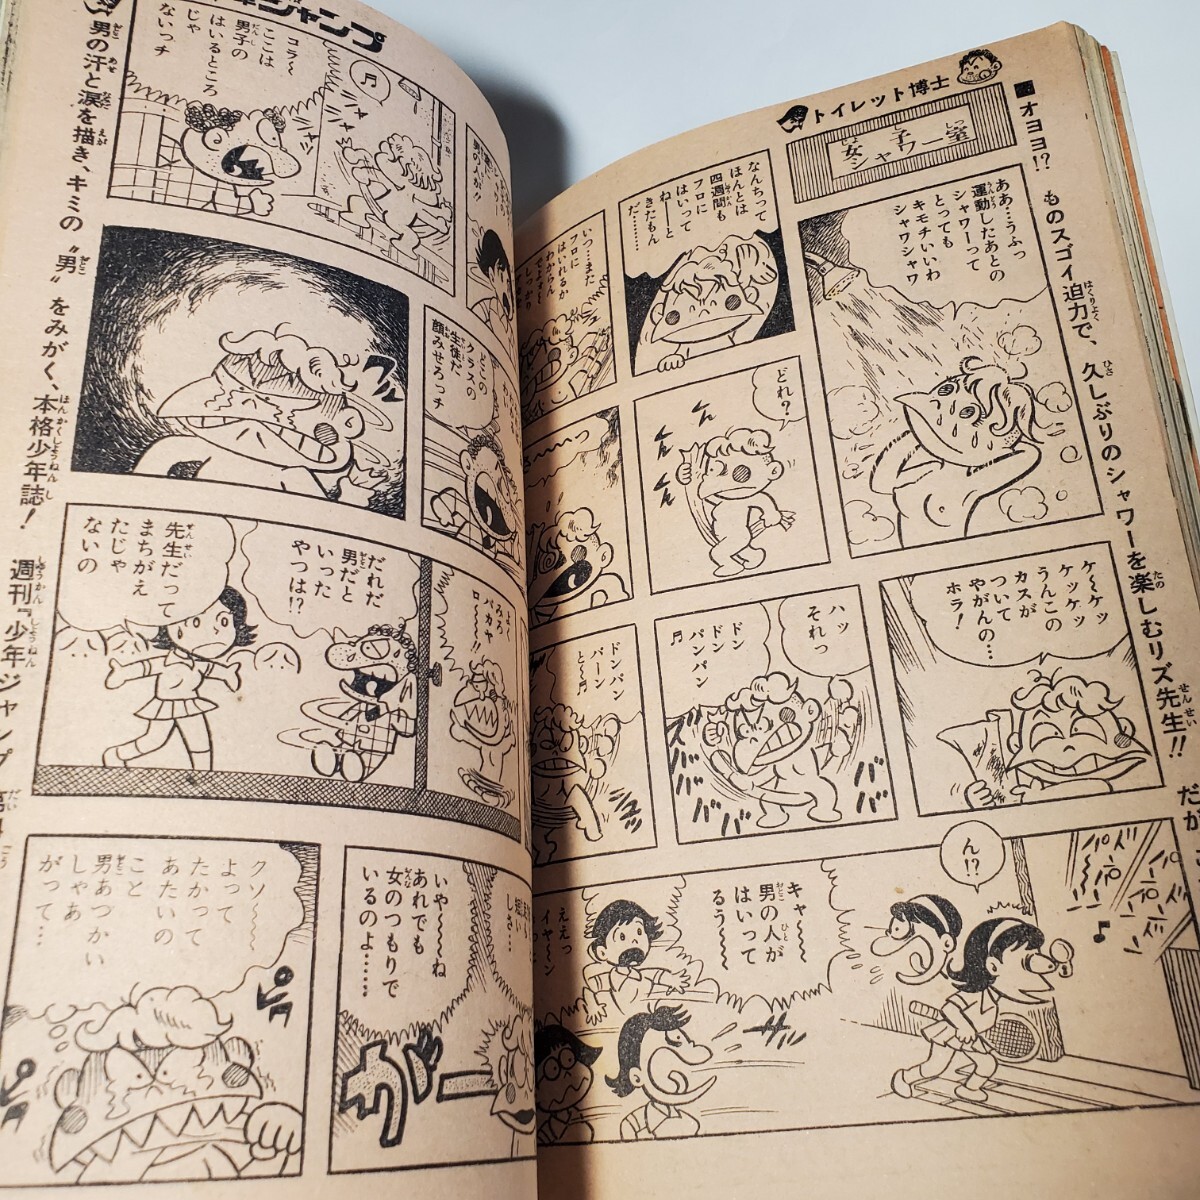 トイレット博士
■オヨヨ!? ものスゴイ迫力で、久しぶりのシャワーを楽しむリズ先生!! だが
女子シャワー室
ああ…うふっ
運動したあとの
シャワーって
とっても
キモチいいわ
シャワシャワ
なんちって
ほんとは
四週間も
フロに
はいって
ねーと
きたもん
だ……
いつ…また
フロに
はいれるか
わからん
どれ?
くん
くん
くん
ケ〜ケッ
ケッケッ
うんこの
カスが
ついて
やがんの…
ホラ!
ハッ
それっ
ドン
ドン
パンパン
ババ
ババ
ズババ
ドンパン
パーン
と〜
ん!?
キャ〜
男の人が
はいって
るう〜
ええっ
イヤ〜ン
少年ジャンプ
男の汗と涙を描き、キミの〝男〟をみがく、本格少年誌! 週刊『少年ジャンプ
男の人が!!
コラ〜
ここは
男子の
はいるところ
じゃ
ないっチ
どこの
クラスの
生徒だ
顔みせろっチ
よく
みろ
バカヤ
ロ〜!!
だれだ
男だと
いった
やつは!?
先生だって
まちがえ
たじゃ
ないの
いや〜ね
あれでも
女のつもりで
いるのよ……
クソ〜
よって
たかって
あたいの
こと
男あつかい
しゃあ
がって…